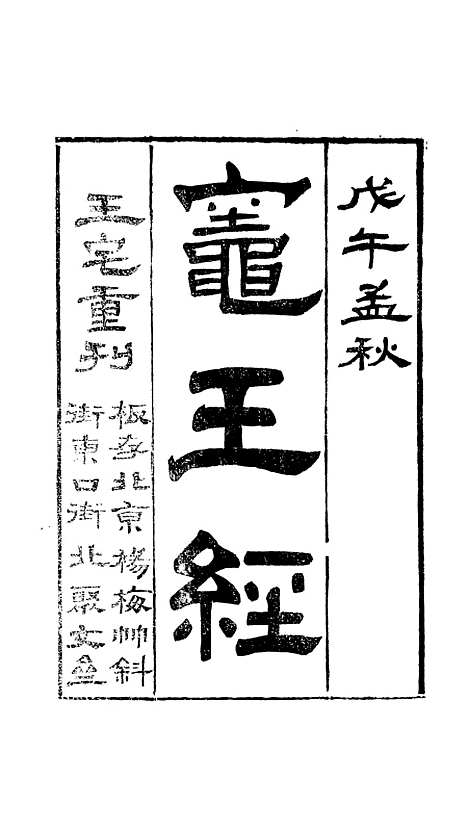 戊午孟秋
竈王經
王宅重刊
板存北京楊梅竹斜
街東口街北聚文堂